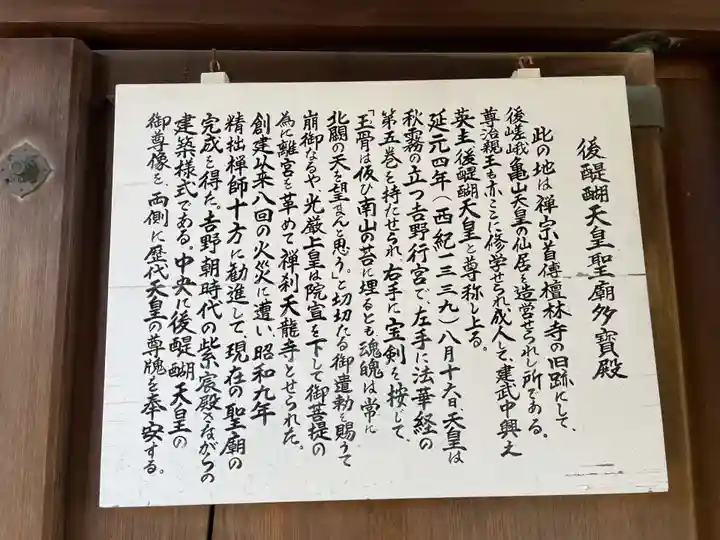 後醍醐天皇聖廟多寶殿
此の地は禅宗首傳檀林寺の旧跡にして、
後嵯峨亀山天皇の仙居を造営せられし所である。
尊治親王も亦ここに修学せられ、成人して、建武中興之
英主後醍醐天皇と尊称し上る。
延元四年(西紀一三三九)八月十六日、天皇は
秋霧の立つ吉野行宮で、左手に法華経の
第五巻を持たせられ、右手に宝剣を按じて、
「玉骨は仮ひ南山の苔に埋るとも魂魄は常に
北闕の天を望まんと思う。」と切切たる御遺勅を賜うて
崩御なるや、光厳上皇は院宣を下して御菩提の
為に離宮を革めて禅刹天龍寺とせられた。
創建以来八回の火災に遭い、昭和九年
精拙禅師十方に勧進して、現在の聖廟の
完成を得た。吉野朝時代の紫宸殿さながらの
建築様式である。中央に後醍醐天皇の
御尊像を、両側に歴代天皇の尊牌を奉安する。